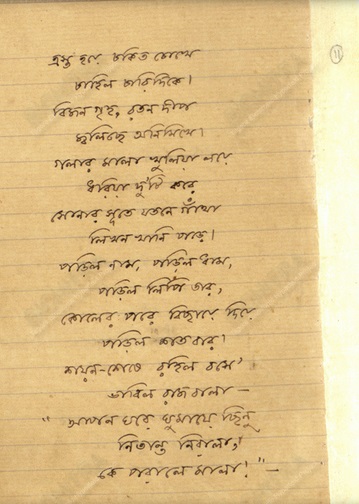 ১১
ত্রস্ত হয়ে চকিত চোখে
চাহিল চারিদিকে।
বিজন গৃহ, রতন দীপ
জ্বলিছে অনিমিখে।
গলার মালা খুলিয়া লয়ে
ধরিয়া দুটি করে
সোনার সূতে যতনে গাঁথা
লিখন খানি পড়ে।
পড়িল নাম, পড়িল ধাম,
পড়িল লিপি তার,
কোলের পরে বিছায়ে দিয়ে
পড়িল শতবার।
শয়ন-শেষে রহিল বসে'
ভাবিল রাজবালা —
"আপন ঘরে ঘুমায়ে ছিনু
নিতান্ত নিরালা,
কে পরালে মালা!" —